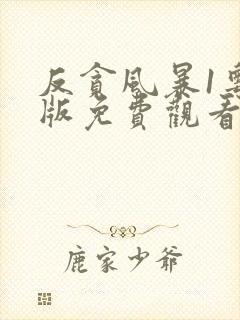 反貪風暴1
版免費觀看
鹿家少爺